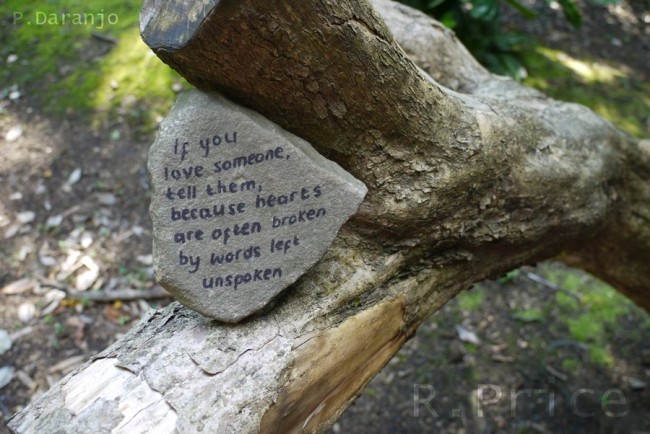 P.Daranjo
If you
love someone,
tell them,
because hearts
are often broken
by words left
unspoken
R.Price